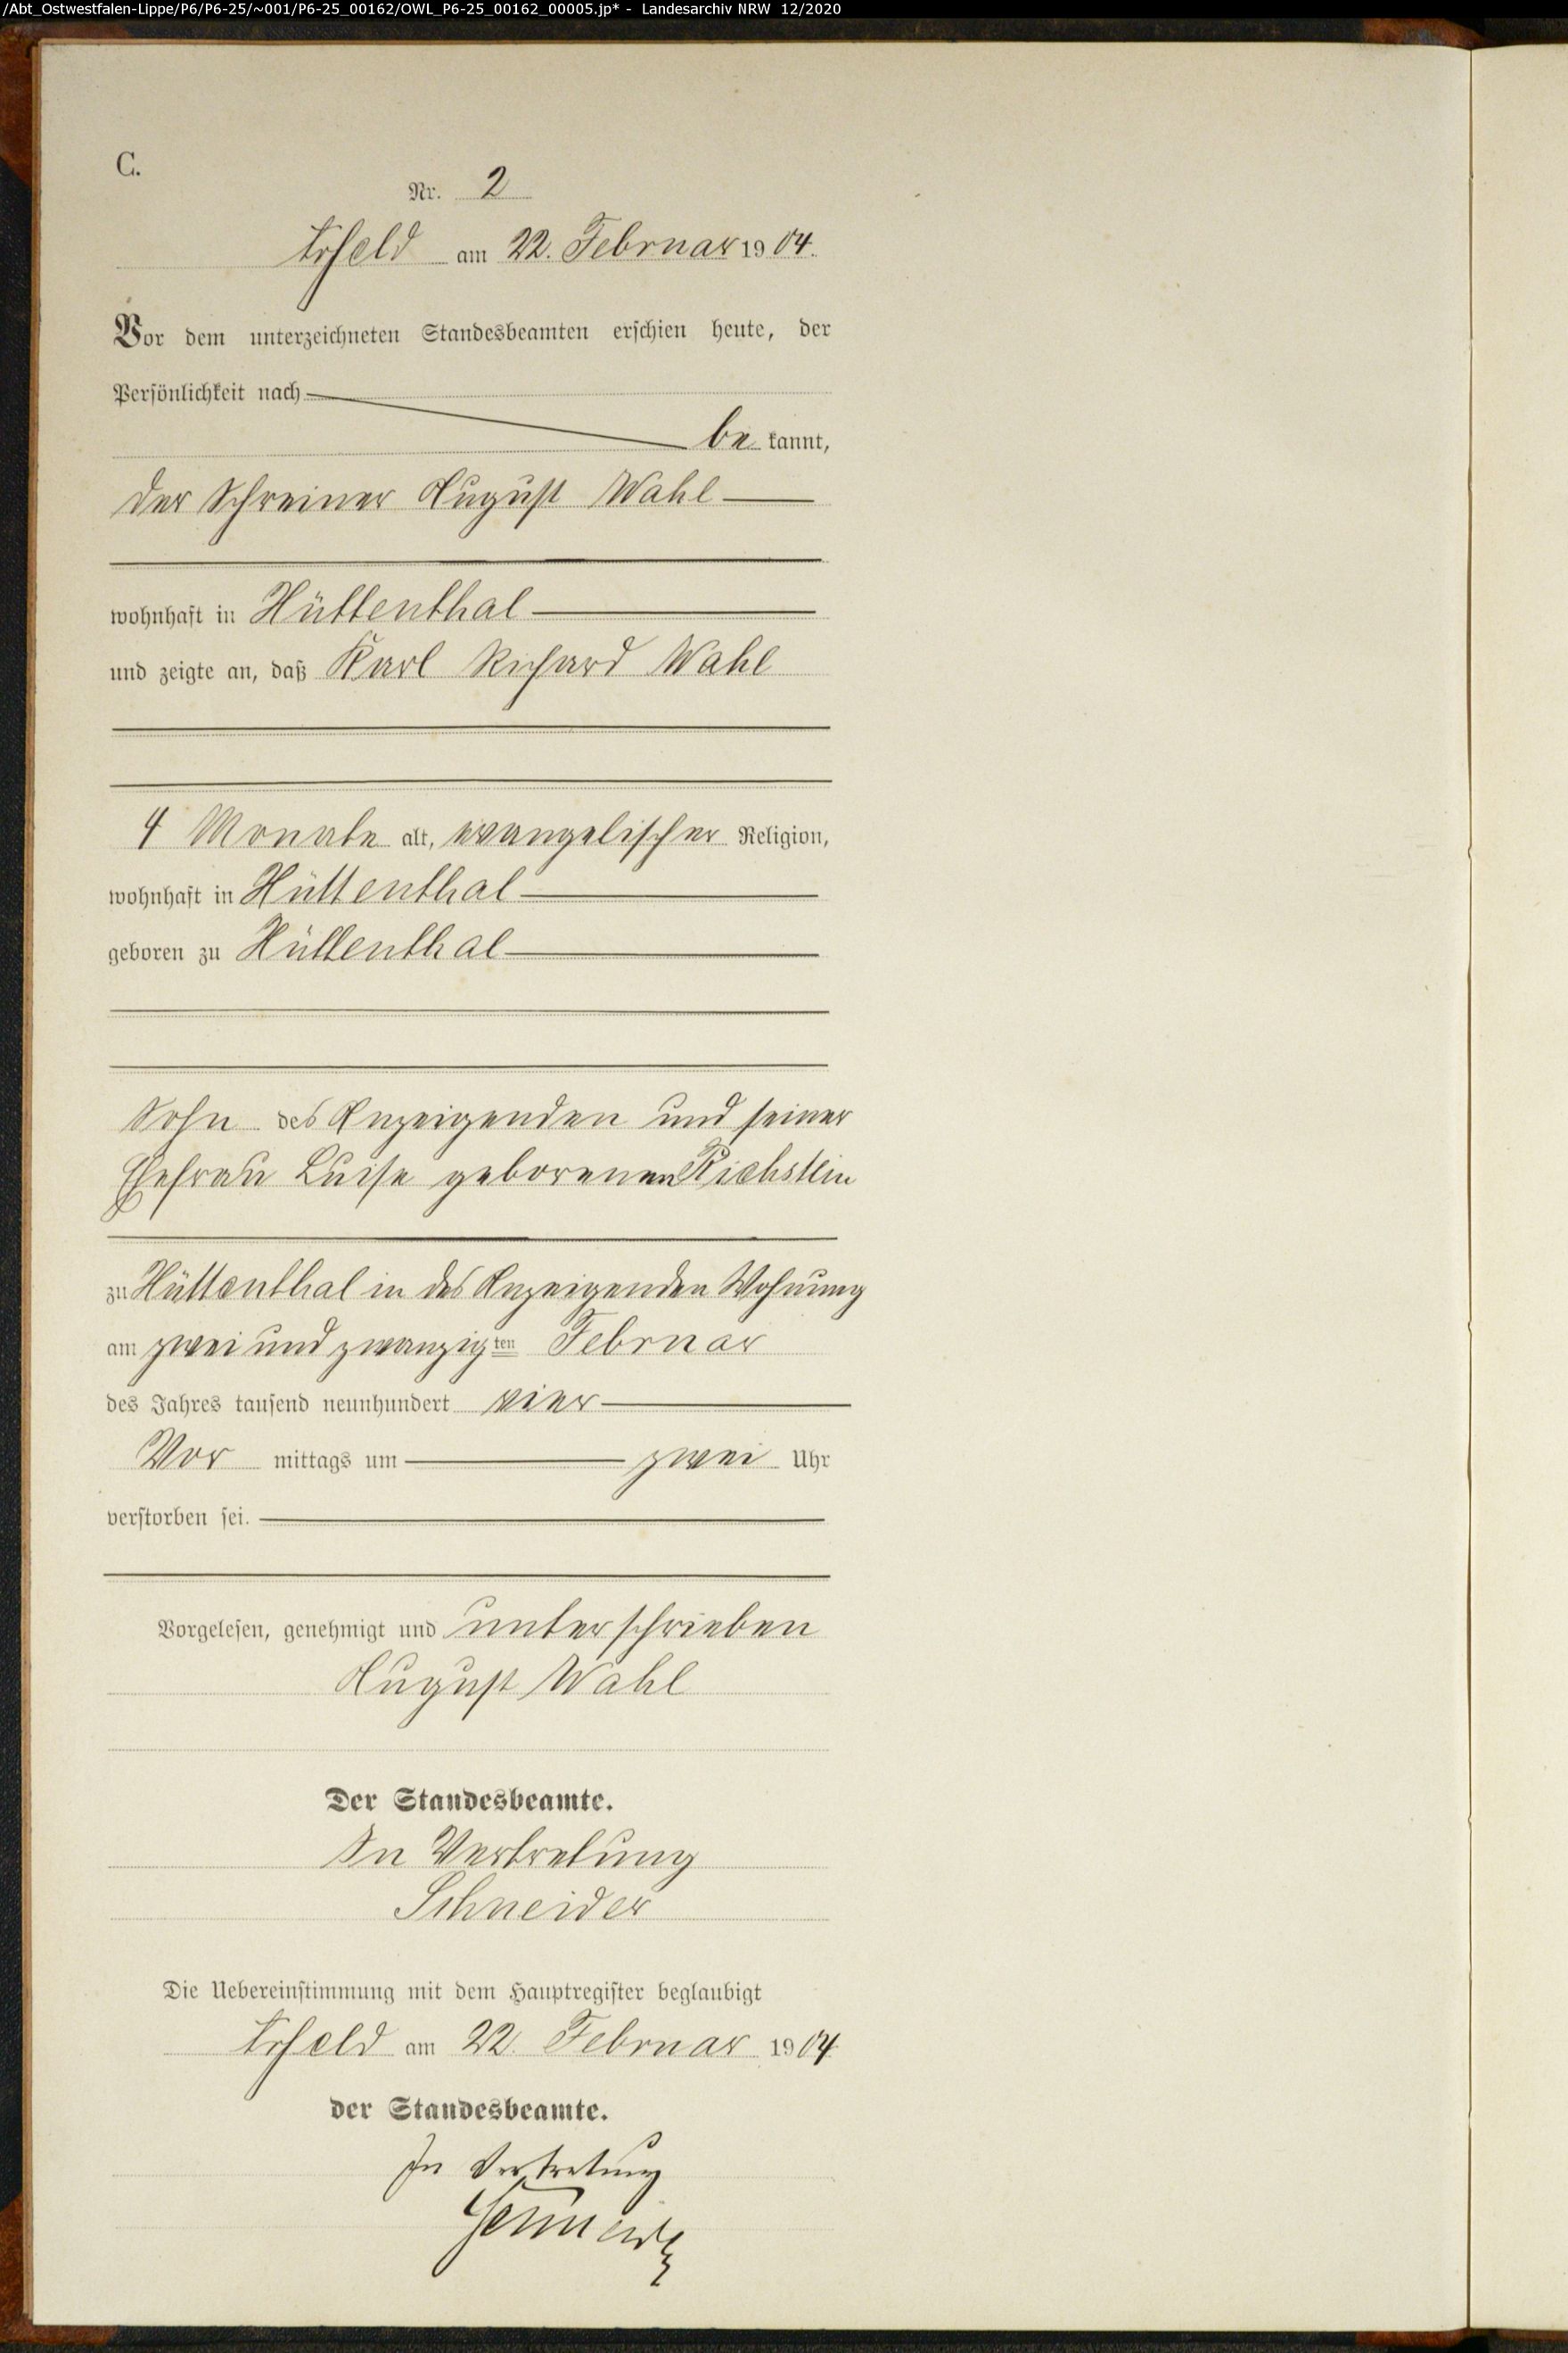 /Abt_Ostwestfalen-Lippe/P6/P6-25/~001/P6-25_00162/OWL_P6-25_00162_00005.jp* - Landesarchiv NRW 12/2020
C.
Nr. 2
am 22. Februar 1904.
Vor dem unterzeichneten Standesbeamten erschien heute, der
Persönlichkeit nach
be kannt,
der Schreiner August Wahl
wohnhaft in Hüttenthal
und zeigte an, daß Karl Richard Wahl
4 Monate alt, evangelischer Religion,
wohnhaft in Hüttenthal
geboren zu Hüttenthal
Sohn des Anzeigenden und seiner
Ehefrau Luise geborenen Richstein
zu Hüttenthal in des Anzeigenden Wohnung
am zwei und zwanzigten Februar
des Jahres tausend neunhundert vier
Vor mittags um zwei Uhr
verstorben sei.
Vorgelesen, genehmigt und unterschrieben
August Wahl
Der Standesbeamte.
In Vertretung
Schneider
Die Uebereinstimmung mit dem Hauptregister beglaubigt
am 22. Februar 1904
der Standesbeamte.
In Vertretung
Schneider